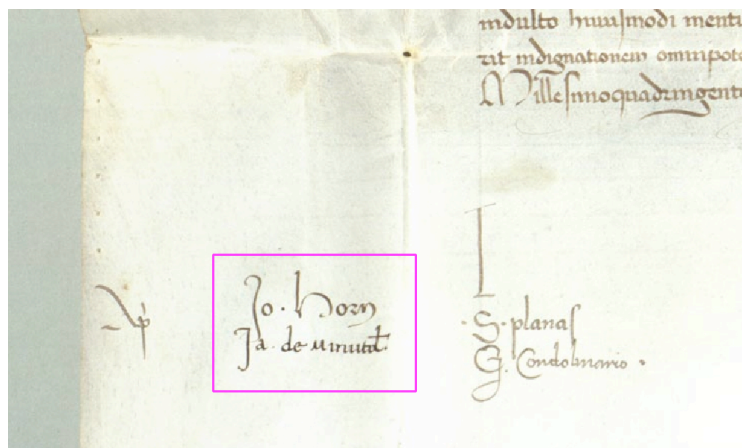 indulto huiusmodi
rit indignationem omnipote
Millesimoquadringente
Jo. Horn
Ja. de Minutul.
S. planas
G. Condolmario.